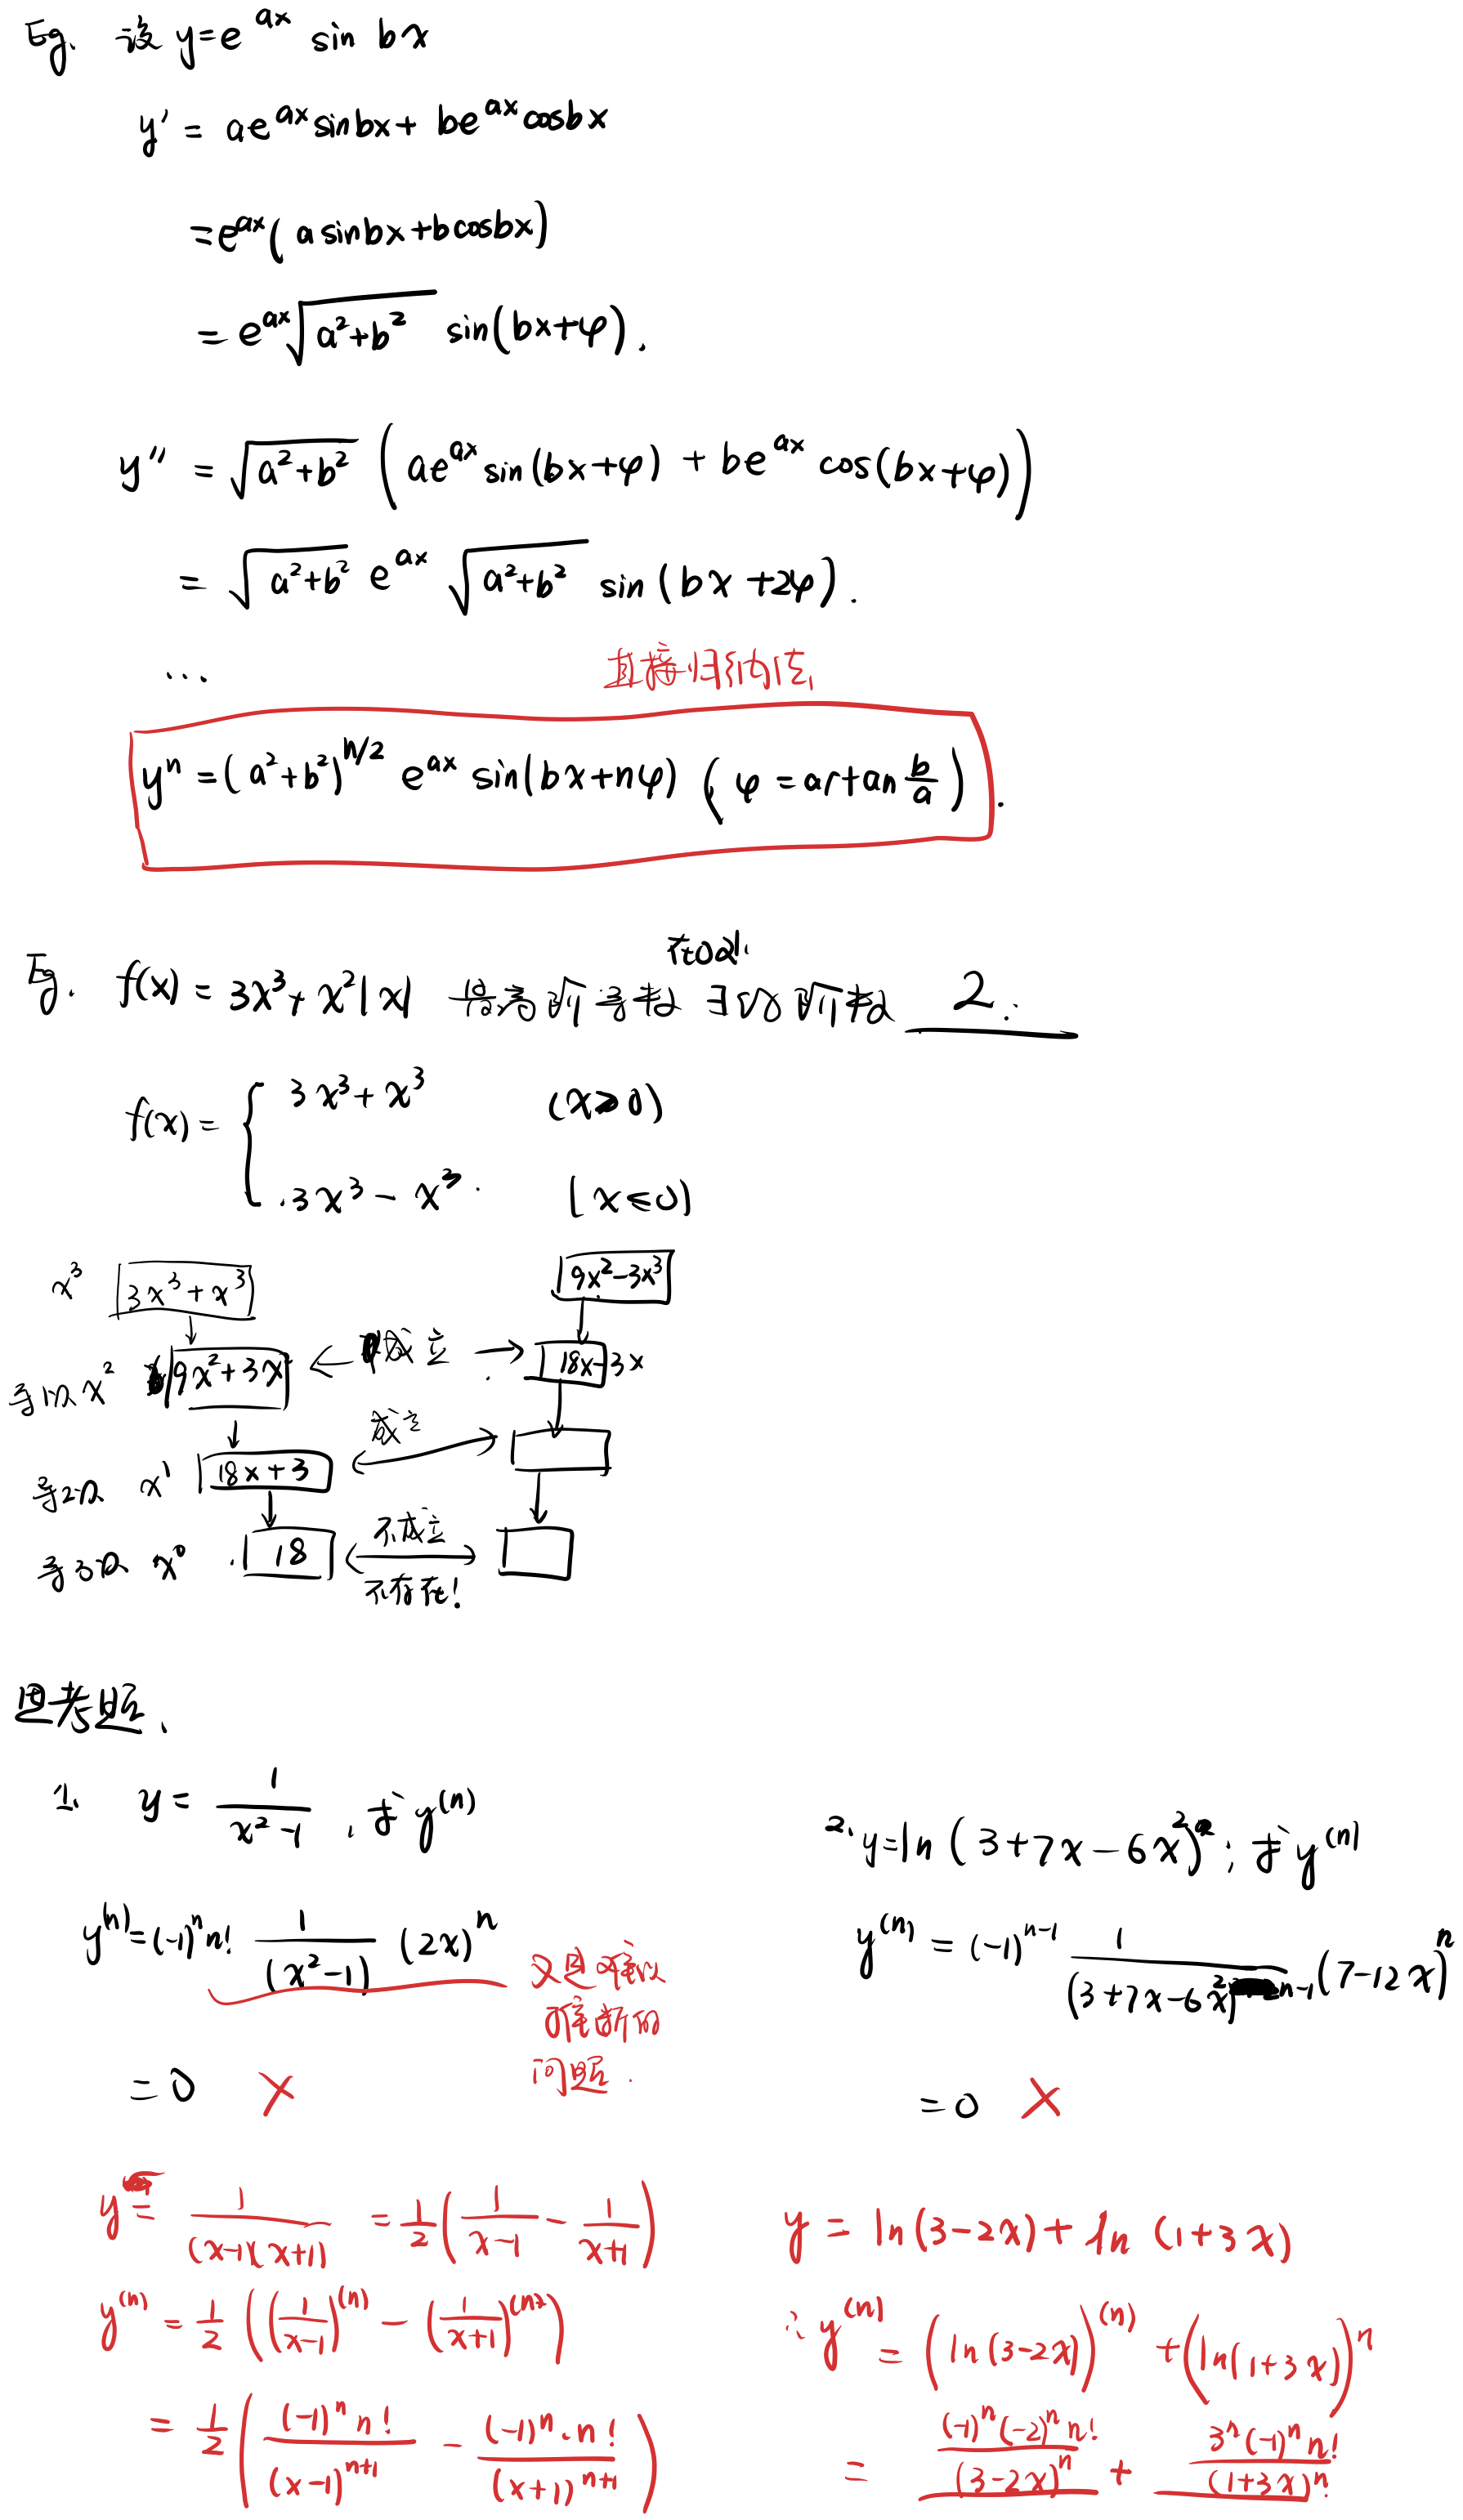 Eg. 设 y=e^{ax} sin bx
y' = ae^{ax} sin bx + be^{ax} cos bx
= e^{ax}(a sin bx + b cos bx)
= e^{ax} √(a²+b²) sin(bx+φ).
y'' = √(a²+b²) (ae^{ax} sin(bx+φ) + be^{ax} cos(bx+φ))
= √(a²+b²) e^{ax} √(a²+b²) sin(bx+2φ).
...
直接归纳法
y^n = (a²+b²)^{n/2} e^{ax} sin(bx+nφ) (φ = artan b/a).
Eg. f(x) = 3x³+x²|x| 最高阶导数 的阶数 2.
f(x) = { 3x³+x³ (x≥0)
3x³-x³. (x≤0)
x³ 3x³+x³ 9x²-3x³
导1次 x² 9x²+3x ← 求导 → 18x-3x
导2次 x¹ 18x+3
导3次 x⁰ 18
不存在!
思考题.
1. y = 1/(x²-1), 求 y^{(n)}
2. y=ln(3+7x-6x²); 求 y^{(n)}
y^{(n)} = (-1)^n n! 1/(x²-1) (2x)^n
y^{(n)} = (-1)^{n-1} 1/(3+7x-6x²)^{n-1} (7-12x)^n
问题.
=0 ×
=0 ×
y = 1/((x-1)(x+1)) = 1/2 (1/(x-1) - 1/(x+1))
y = ln(3-2x) + ln(1+3x)
y^{(n)} = 1/2 ((1/(x-1))^{(n)} - (1/(x+1))^{(n)})
∴ y^{(n)} = (ln(3-2x))^{(n)} + (ln(1+3x))^n
= 1/2 ((-1)^n n!/(x-1)^{n+1} - (-1)^n·n!/(x+1)^{n+1})
= (-1)^n(-2)^n n!/(3-2x)^n + 3^n(-1)^n n!/(1+3x)^n